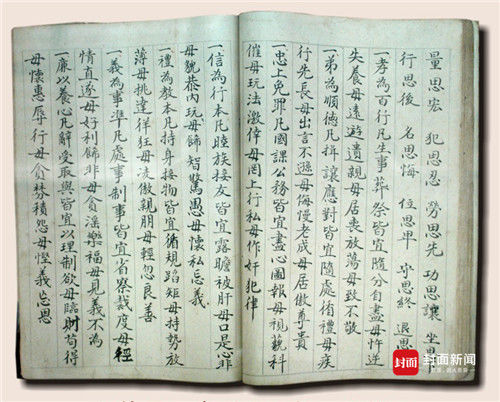 量思宏 犯思忍 勞思先 功思讓 坐思
行思後 名思悔 位思卑 守思終 退思
一孝為百行凡生事葬祭皆宜隨分自盡毋忤逆
失養毋遠遊遺親毋居喪放蕩毋致不敬
一弟為順德凡揖讓應對皆宜隨處侑禮毋疾
行先長毋出言不遜毋侮慢老成毋居傲尊貴
一忠上免罪凡國課公務皆宜盡心圖報毋視藐科
催毋玩法激倖毋罔上行私毋作奸犯律
一信為行本凡睦族接友皆宜露瞻被肝毋口是心非
毋貌恭內玩毋飾智驚愚毋懷私忘義
一禮為教本凡持身接物皆宜循規蹈矩毋持勢放
薄毋挑達徉狂毋凌傲親朋毋輕忽良善
一義為事準凡處事制事皆宜省察裁度毋經
情直遂毋好利飾非毋貪淫樂福毋見義不為
一廉以養心凡辭受取與皆宜以理制欲毋臨財苟得
毋懷惠辱行毋貪婪積怨毋慳義忘思
封面 封面新闻